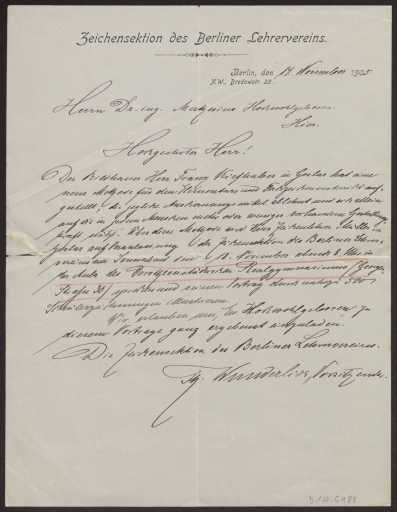 Zeichensektion des Berliner Lehrervereins.
Berlin, den 14. November 1905
N.W. Bredowstr. 22.
Herrn Dr. ing. Muthesius Hochwohlgeboren
Hier.
Hochgeehrter Herr!
Der Herr Franz in Goslar hat eine
neue Methode für den Elementar und auf-
gestellt, die jegliche
auf die in jedem Menschen mehr oder weniger vorhandene Gestaltungs-
kraft stützt. Über diese Methode wird Herr
auf Veranlassung der Zeichensektion des Berliner Lehrer-
vereins am Sonnabend den 18. November abends 8 Uhr in
der Aula des Dorotheenstädtischen Realgymnasiums (Georgen-
Straße 30/) sprechen und seinen Vortrag durch
Schülerzeichnungen illustrieren.
Wir erlauben uns, Ew Hochwohlgeboren zu
diesem Vortrage ganz ergebenst einzuladen.
Die Zeichensektion des Berliner Lehrervereins.
Th. Wunderlich, Vorsitzender.